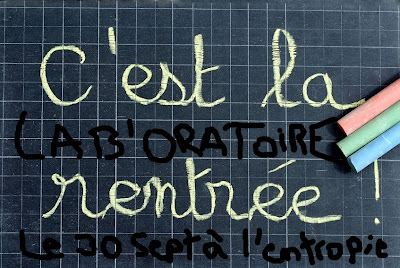 C'est la
LAB'ORATOIRE
rentrée !
Le 30 Sept à l'entropie